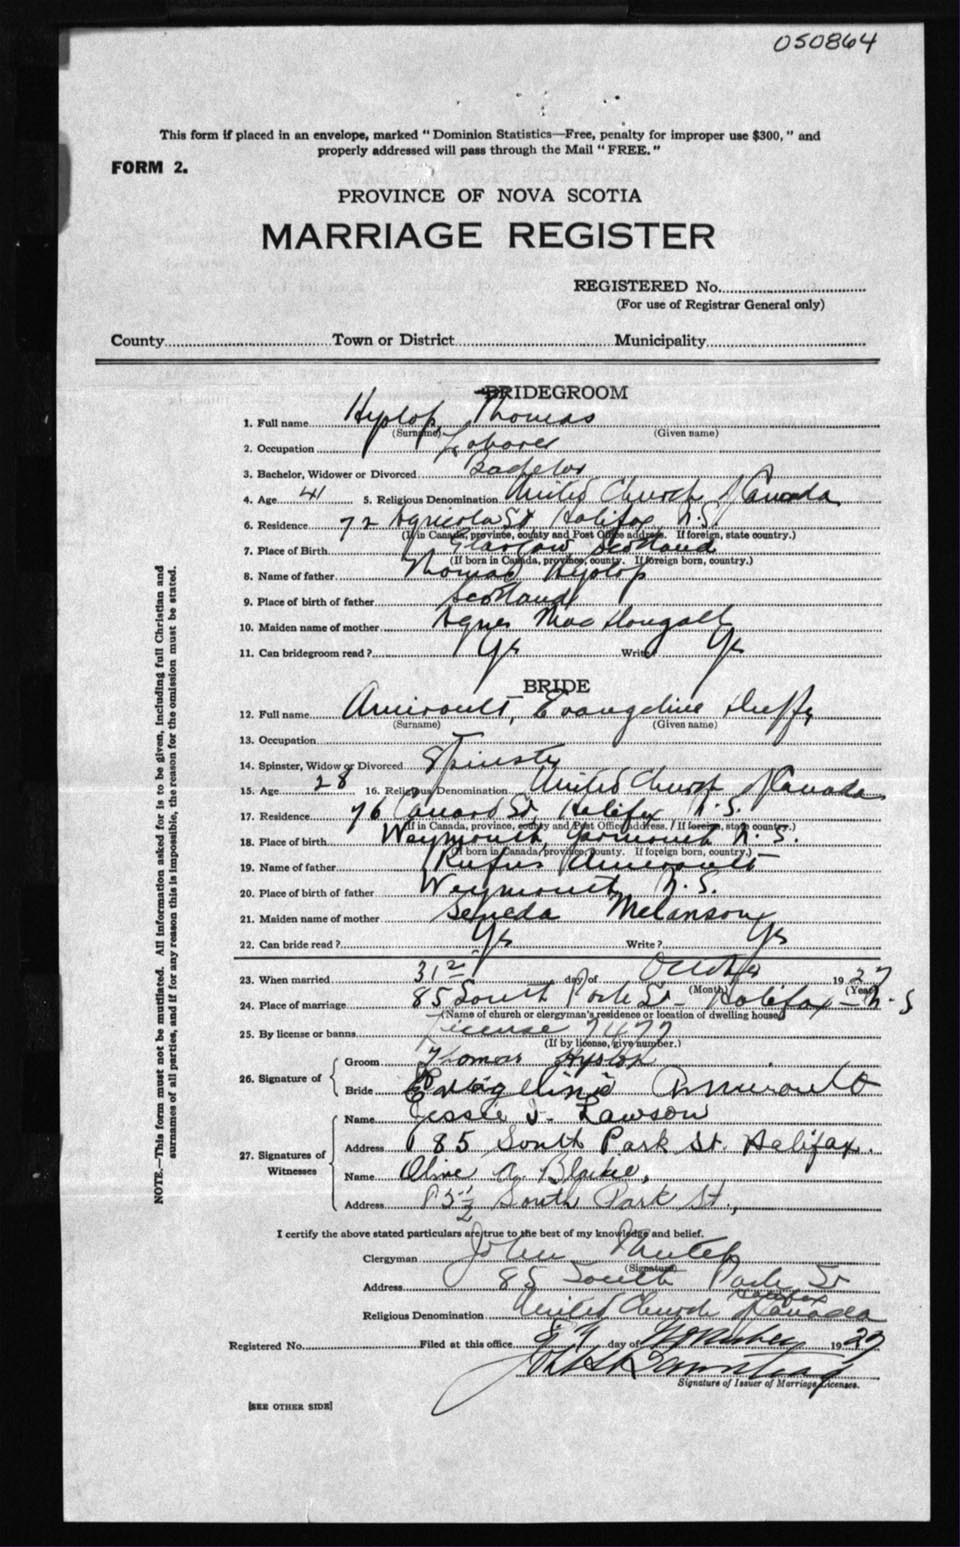 050864
This form if placed in an envelope, marked "Dominion Statistics—Free, penalty for improper use $300," and
properly addressed will pass through the Mail "FREE."
FORM 2.
PROVINCE OF NOVA SCOTIA
MARRIAGE REGISTER
REGISTERED No.
(For use of Registrar General only)
County Town or District Municipality
BRIDEGROOM
1. Full name Hyslop, Thomas
(Surname) (Given name)
2. Occupation Laborer
3. Bachelor, Widower or Divorced Bachelor
4. Age 41 5. Religious Denomination United Church of Canada
6. Residence 72 Agricola St Halifax, N.S.
(If in Canada, province, county and Post Office address. If foreign, state country.)
7. Place of Birth Glasgow Scotland
(If born in Canada, province, county. If foreign born, country.)
8. Name of father Thomas Hyslop
9. Place of birth of father Scotland
10. Maiden name of mother Agnes MacDougall
11. Can bridegroom read? Yes Write? Yes
BRIDE
12. Full name Amirault, Evangeline
(Surname) (Given name)
13. Occupation
14. Spinster, Widow or Divorced Spinster
15. Age 28 16. Religious Denomination United Church of Canada
17. Residence 76 St, Halifax N.S.
(If in Canada, province, county and Post Office address. If foreign, state country.)
18. Place of birth Weymouth, Yarmouth N.S.
(If born in Canada, province, county. If foreign born, country.)
19. Name of father Rufus Amirault
20. Place of birth of father Weymouth N.S.
21. Maiden name of mother Melanson
22. Can bride read? Yes Write? Yes
23. When married 31st day of October 1927
(Month) (Year)
24. Place of marriage 85 South Park St – Halifax – N.S
(Name of church or clergyman's residence or location of dwelling house)
25. By license or banns License 7477
(If by license, give number.)
26. Signature of
Groom Thomas Hyslop
Bride Evangeline Amirault
27. Signatures of Witnesses
Name Jessie I. Lawson
Address 85 South Park St. Halifax.
Name Olive A. Blaikie,
Address 85 1/2 South Park St.,
I certify the above stated particulars are true to the best of my knowledge and belief.
Clergyman John
(Signature)
Address 85 South Park St
Halifax
Religious Denomination United Church of Canada
Registered No. Filed at this office day of November 1927
Signature of Issuer of Marriage Licenses.
[SEE OTHER SIDE]
NOTE.—This form must not be mutilated. All information asked for is to be given, including full Christian and
surnames of all parties, and if for any reason this is impossible, the reason for the omission must be stated.